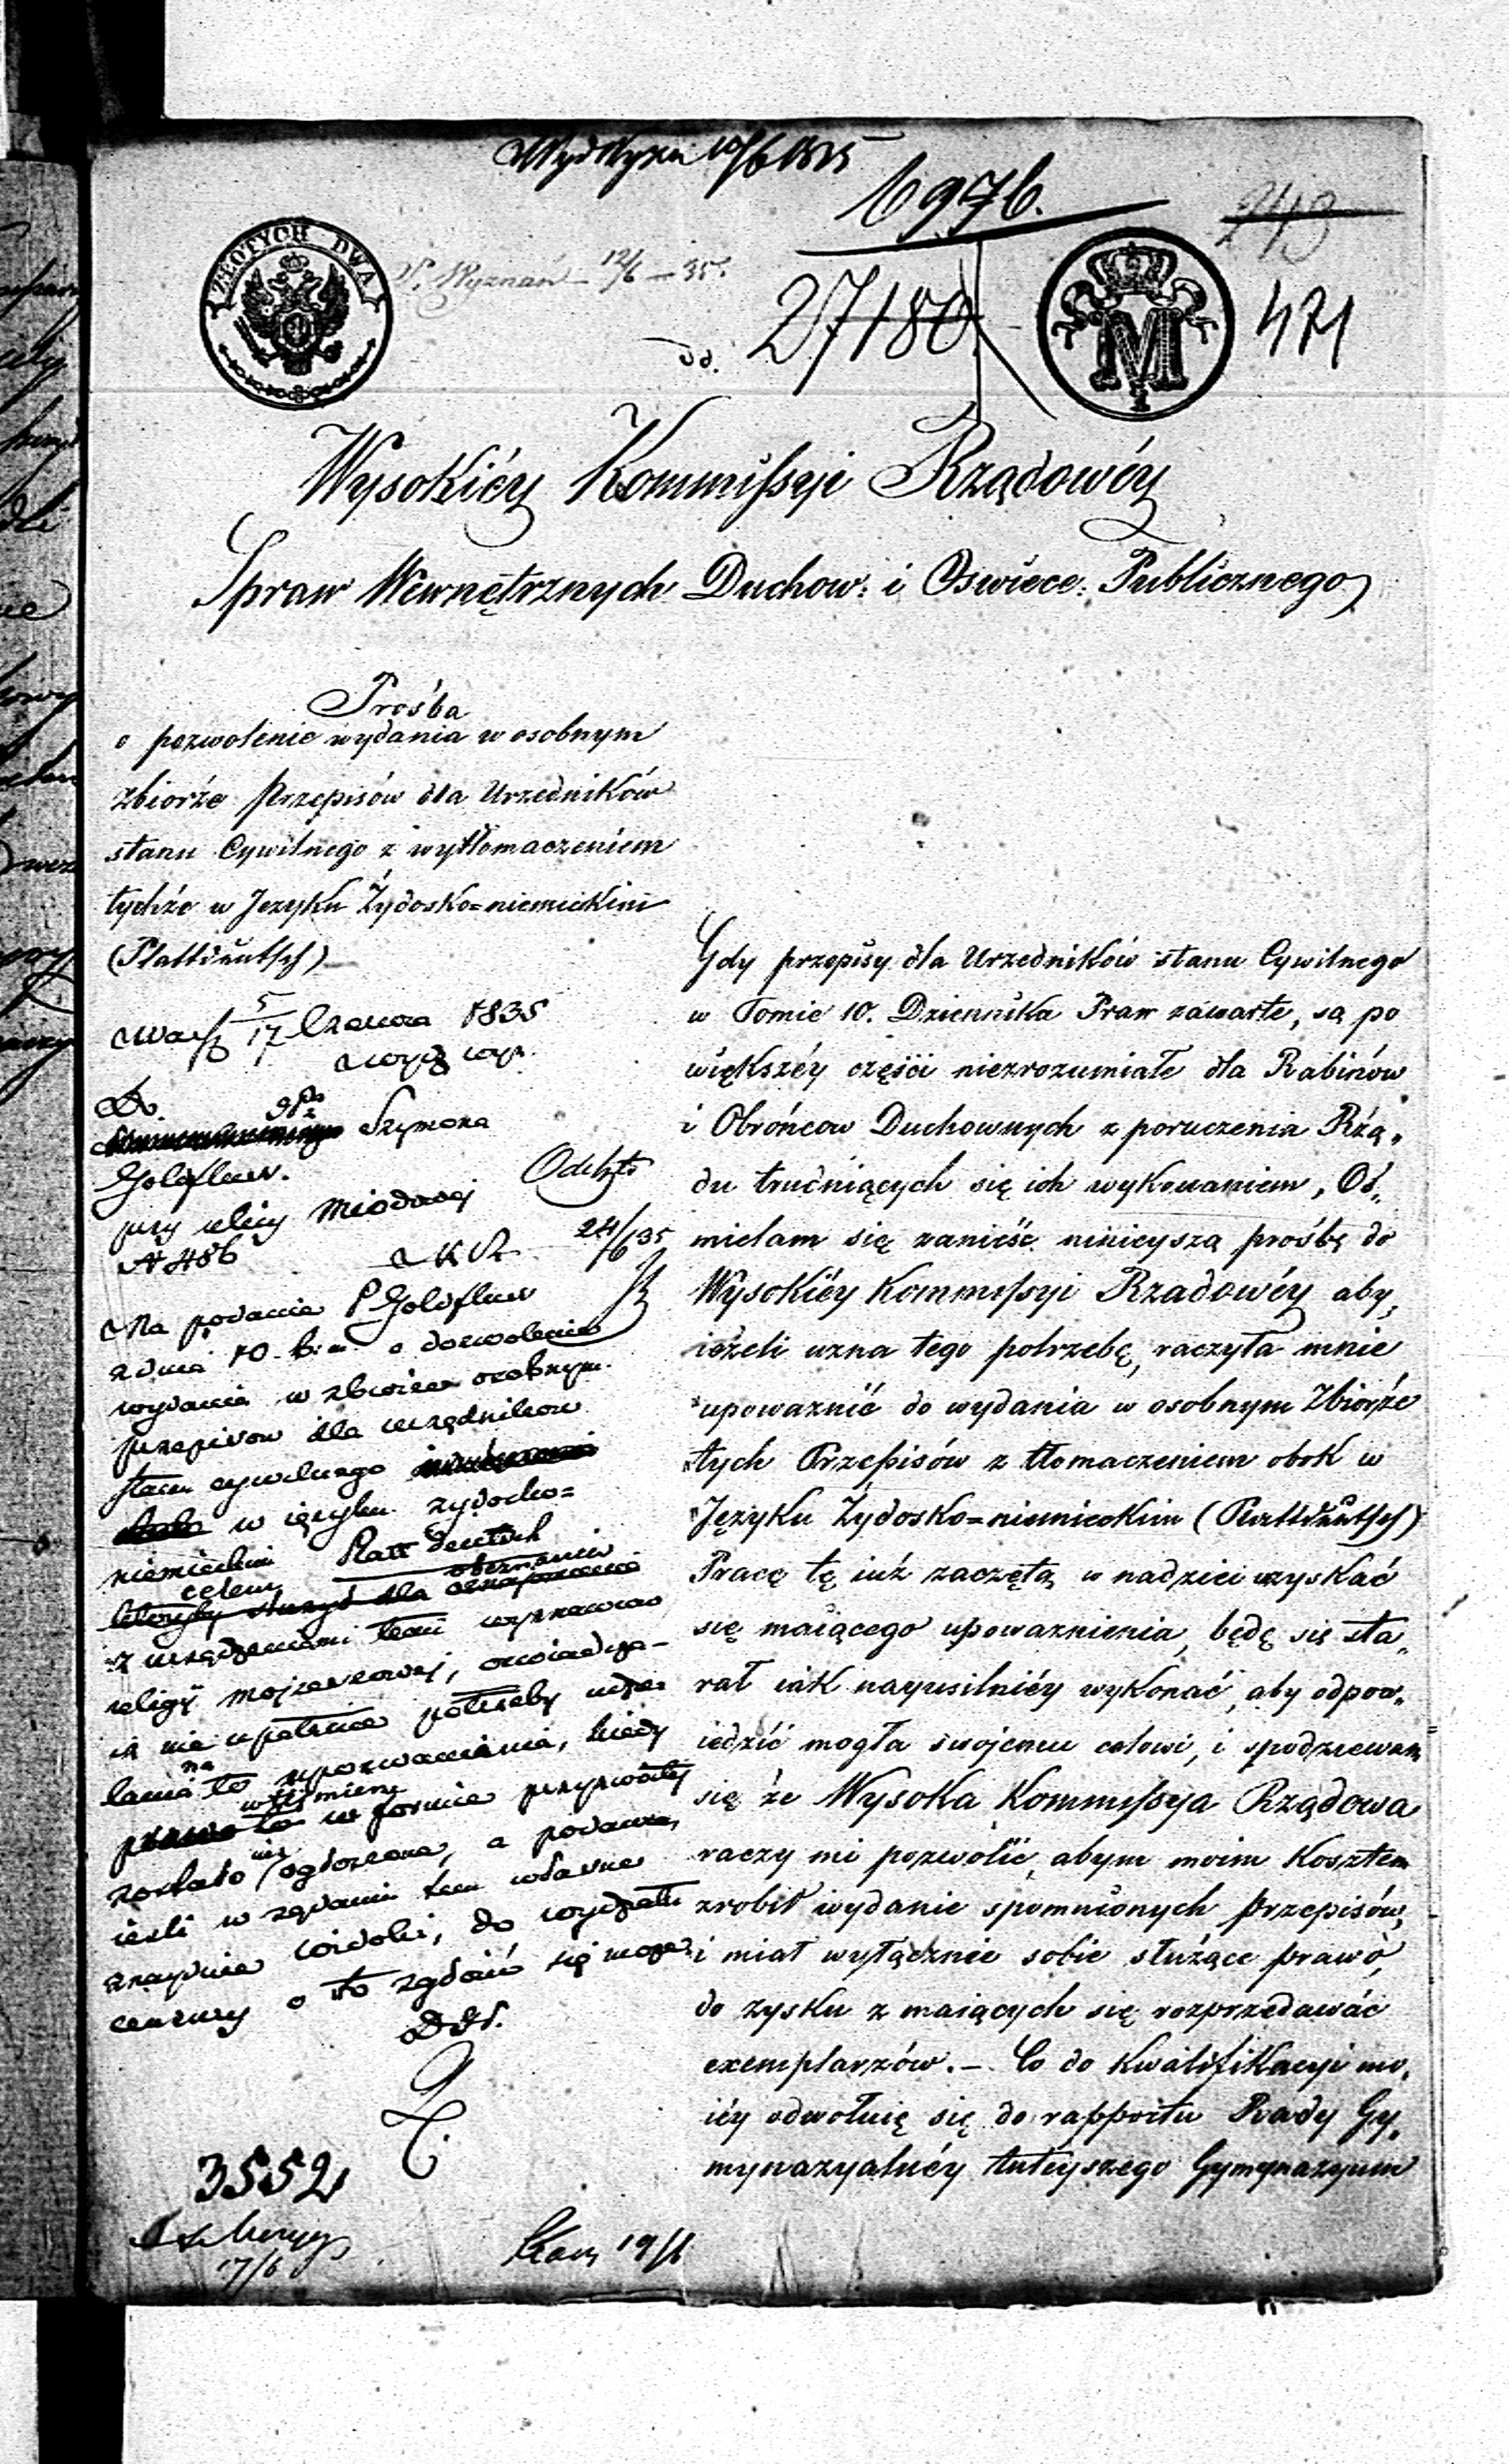 Wydz. Wyzn. 10/6 1835
6976.
243
ZŁOTYCH DWA
W. Wyznań – 12/6 – 35.
dd. 27180
M
471
Wysokiéy Kommissyi Rządowéy
Spraw Wewnętrznych Duchow: i Oświece: Publicznego
Prośba
o pozwolenie wydania w osobnym
zbiorże Przepisów dla Urzedników
stanu Cywilnego z wytłomaczeniem
tychże w Jezyku Żydosko=niemieckim
(Plattdeutsch)
5
Warsz 17 Czerwca 1835
Wydz wyz.
Do
Szymona
Goldfluss.
przy ulicy Miodowej
N 486
Odebr
24/6 35
Na podanie P Goldfluss
z dnia 10 b. m. o dozwolenie
wydania w zbiorze osobnym
przepisow dla urzędnikow
stanu cywilnego
w ięzyku zydosko=
niemieckim Platt Deutsch
celem obeznania
z urządzeniami temi wyznawców
religii mojżeszowej, oswiadcza
iż nie upatruie potrzeby udzie
lania na to upoważnienia, kiedy
w formie przyzwoitej
zostało ogłoszone, a podawca,
ieśli w żądaniu tem własne
znayduie widoki, do wydziału
cenzury o to zgłosić się może.
3552
17/6
19/6
Gdy przepisy dla Urzedników stanu Cywilnego
w Tomie 10. Dziennika Praw zawarte, są po
większéy części niezrozumiałe dla Rabinów
i Obrońcow Duchownych z poruczenia Rżą„
du trudniących się ich wykonaniem, Oś„
mielam się zanieść ninieyszą prośbę do
Wysokiéy Kommissyi Rzadowéy aby,
ieżeli uzna tego potrzebę, raczyła mnie
upoważnić do wydania w osobnym Zbiorże
tych Przepisów z tłomaczeniem obok w
Języku Żydosko=niemieckim (Plattdeutsch)
Pracę tę iuż zaczętą w nadziei uzyskać
się maiącego upoważnienia, będę się sta„
rał iak nayusilniéy wykonać, aby odpow„
iedzić mogła swojemu celowi, i spodziewam
się że Wysoka Kommissyja Rządowa
raczy mi pozwolić, abym moim Kosztem
zrobił wydanie spomnionych Przepisów,
i miał wyłącznie sobie służące prawo,
do zysku z maiących się rozprzedawać
exemplarzów. – Co do Kwalifikacyi mo„
iéy odwołuię się do rapportu Rady Gy„
mynazyalnéy tuteyszego Gymynazyum